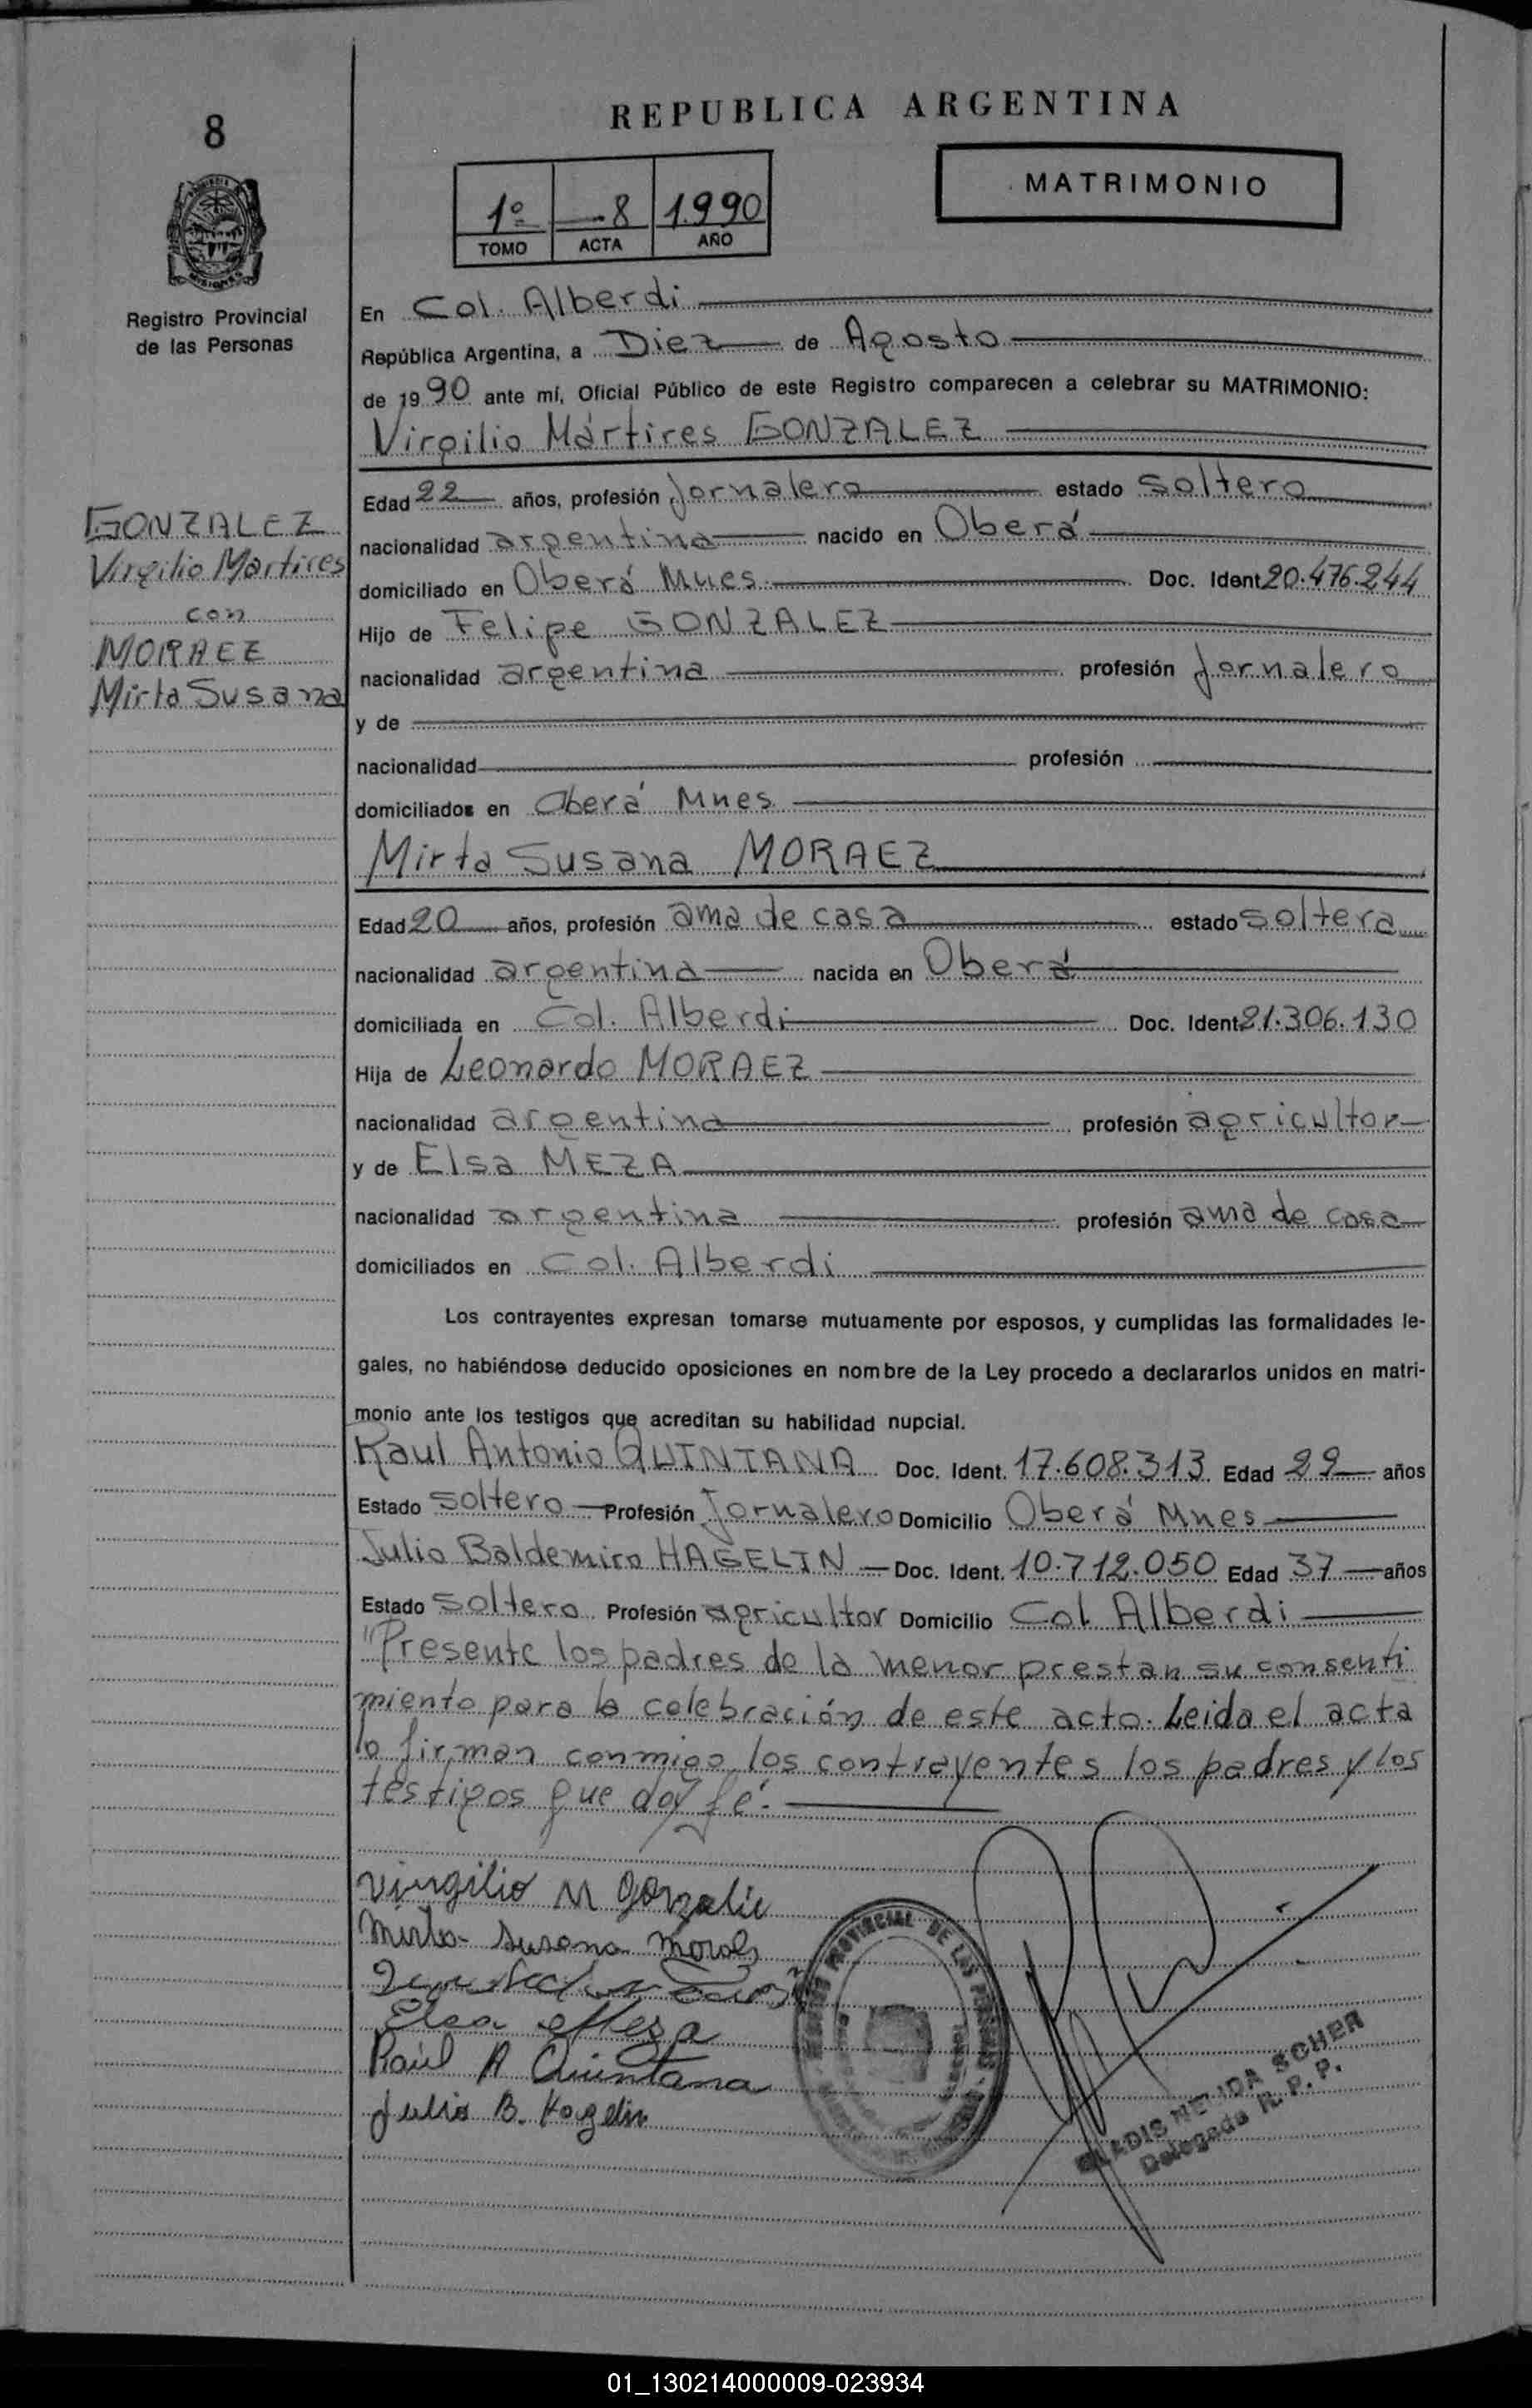 8
REPUBLICA ARGENTINA
MATRIMONIO
1º -8 1.990
TOMO ACTA AÑO
Registro Provincial
de las Personas
En Col. Alberdi
República Argentina, a Diez de Agosto
de 1990 ante mí, Oficial Público de este Registro comparecen a celebrar su MATRIMONIO:
Virgilio Mártires GONZALEZ
GONZALEZ
Virgilio Martires
con
MORAEZ
Mirta Susana
Edad 22 años, profesión Jornalero estado soltero
nacionalidad argentina nacido en Oberá
domiciliado en Oberá Mnes. Doc. Ident. 20.476.244
Hijo de Felipe GONZALEZ
nacionalidad argentina profesión Jornalero
y de
nacionalidad profesión
domiciliados en Oberá Mnes.
Mirta Susana MORAEZ
Edad 20 años, profesión ama de casa estado soltera
nacionalidad argentina nacida en Oberá
domiciliada en Col. Alberdi Doc. Ident. 21.306.130
Hija de Leonardo MORAEZ
nacionalidad argentina profesión agricultor
y de Elsa MEZA
nacionalidad argentina profesión ama de casa
domiciliados en Col. Alberdi
Los contrayentes expresan tomarse mutuamente por esposos, y cumplidas las formalidades le-
gales, no habiéndose deducido oposiciones en nombre de la Ley procedo a declararlos unidos en matri-
monio ante los testigos que acreditan su habilidad nupcial.
Raul Antonio QUINTANA Doc. Ident. 17.608.313 Edad 29 años
Estado soltero Profesión Jornalero Domicilio Oberá Mnes
Julio Baldemiro HAGELIN Doc. Ident. 10.712.050 Edad 37 años
Estado soltero Profesión agricultor Domicilio Col. Alberdi
"Presente los padres de la menor prestan su consenti
miento para la celebración de este acto. Leida el acta
lo firman conmigo los contrayentes los padres y los
testigos que doy fé.
Virgilio M Gonzalez
Mirta Susana Moraez
Elsa Meza
Raúl A Quintana
Julio B. Hagelin
PROVINCIAL DE LAS PERSONAS
GLADIS NELIDA SCHER
Delegada R. P. P.
01_130214000009-023934